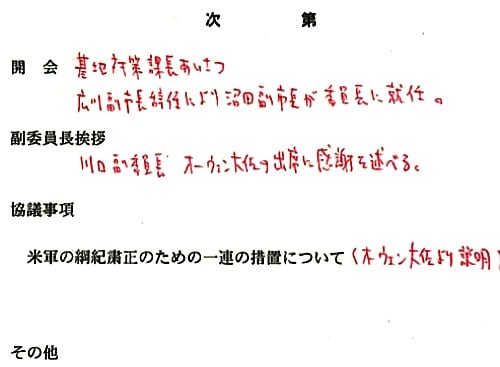 次 第
開 会 基地対策課長あいさつ
広川副市長辞任により沼田副市長が委員長に就任。
副委員長挨拶
川口副委員長 オーウェン大佐の出席に感謝を述べる。
協議事項
米軍の綱紀粛正のための一連の措置について(オーウェン大佐より説明)
その他